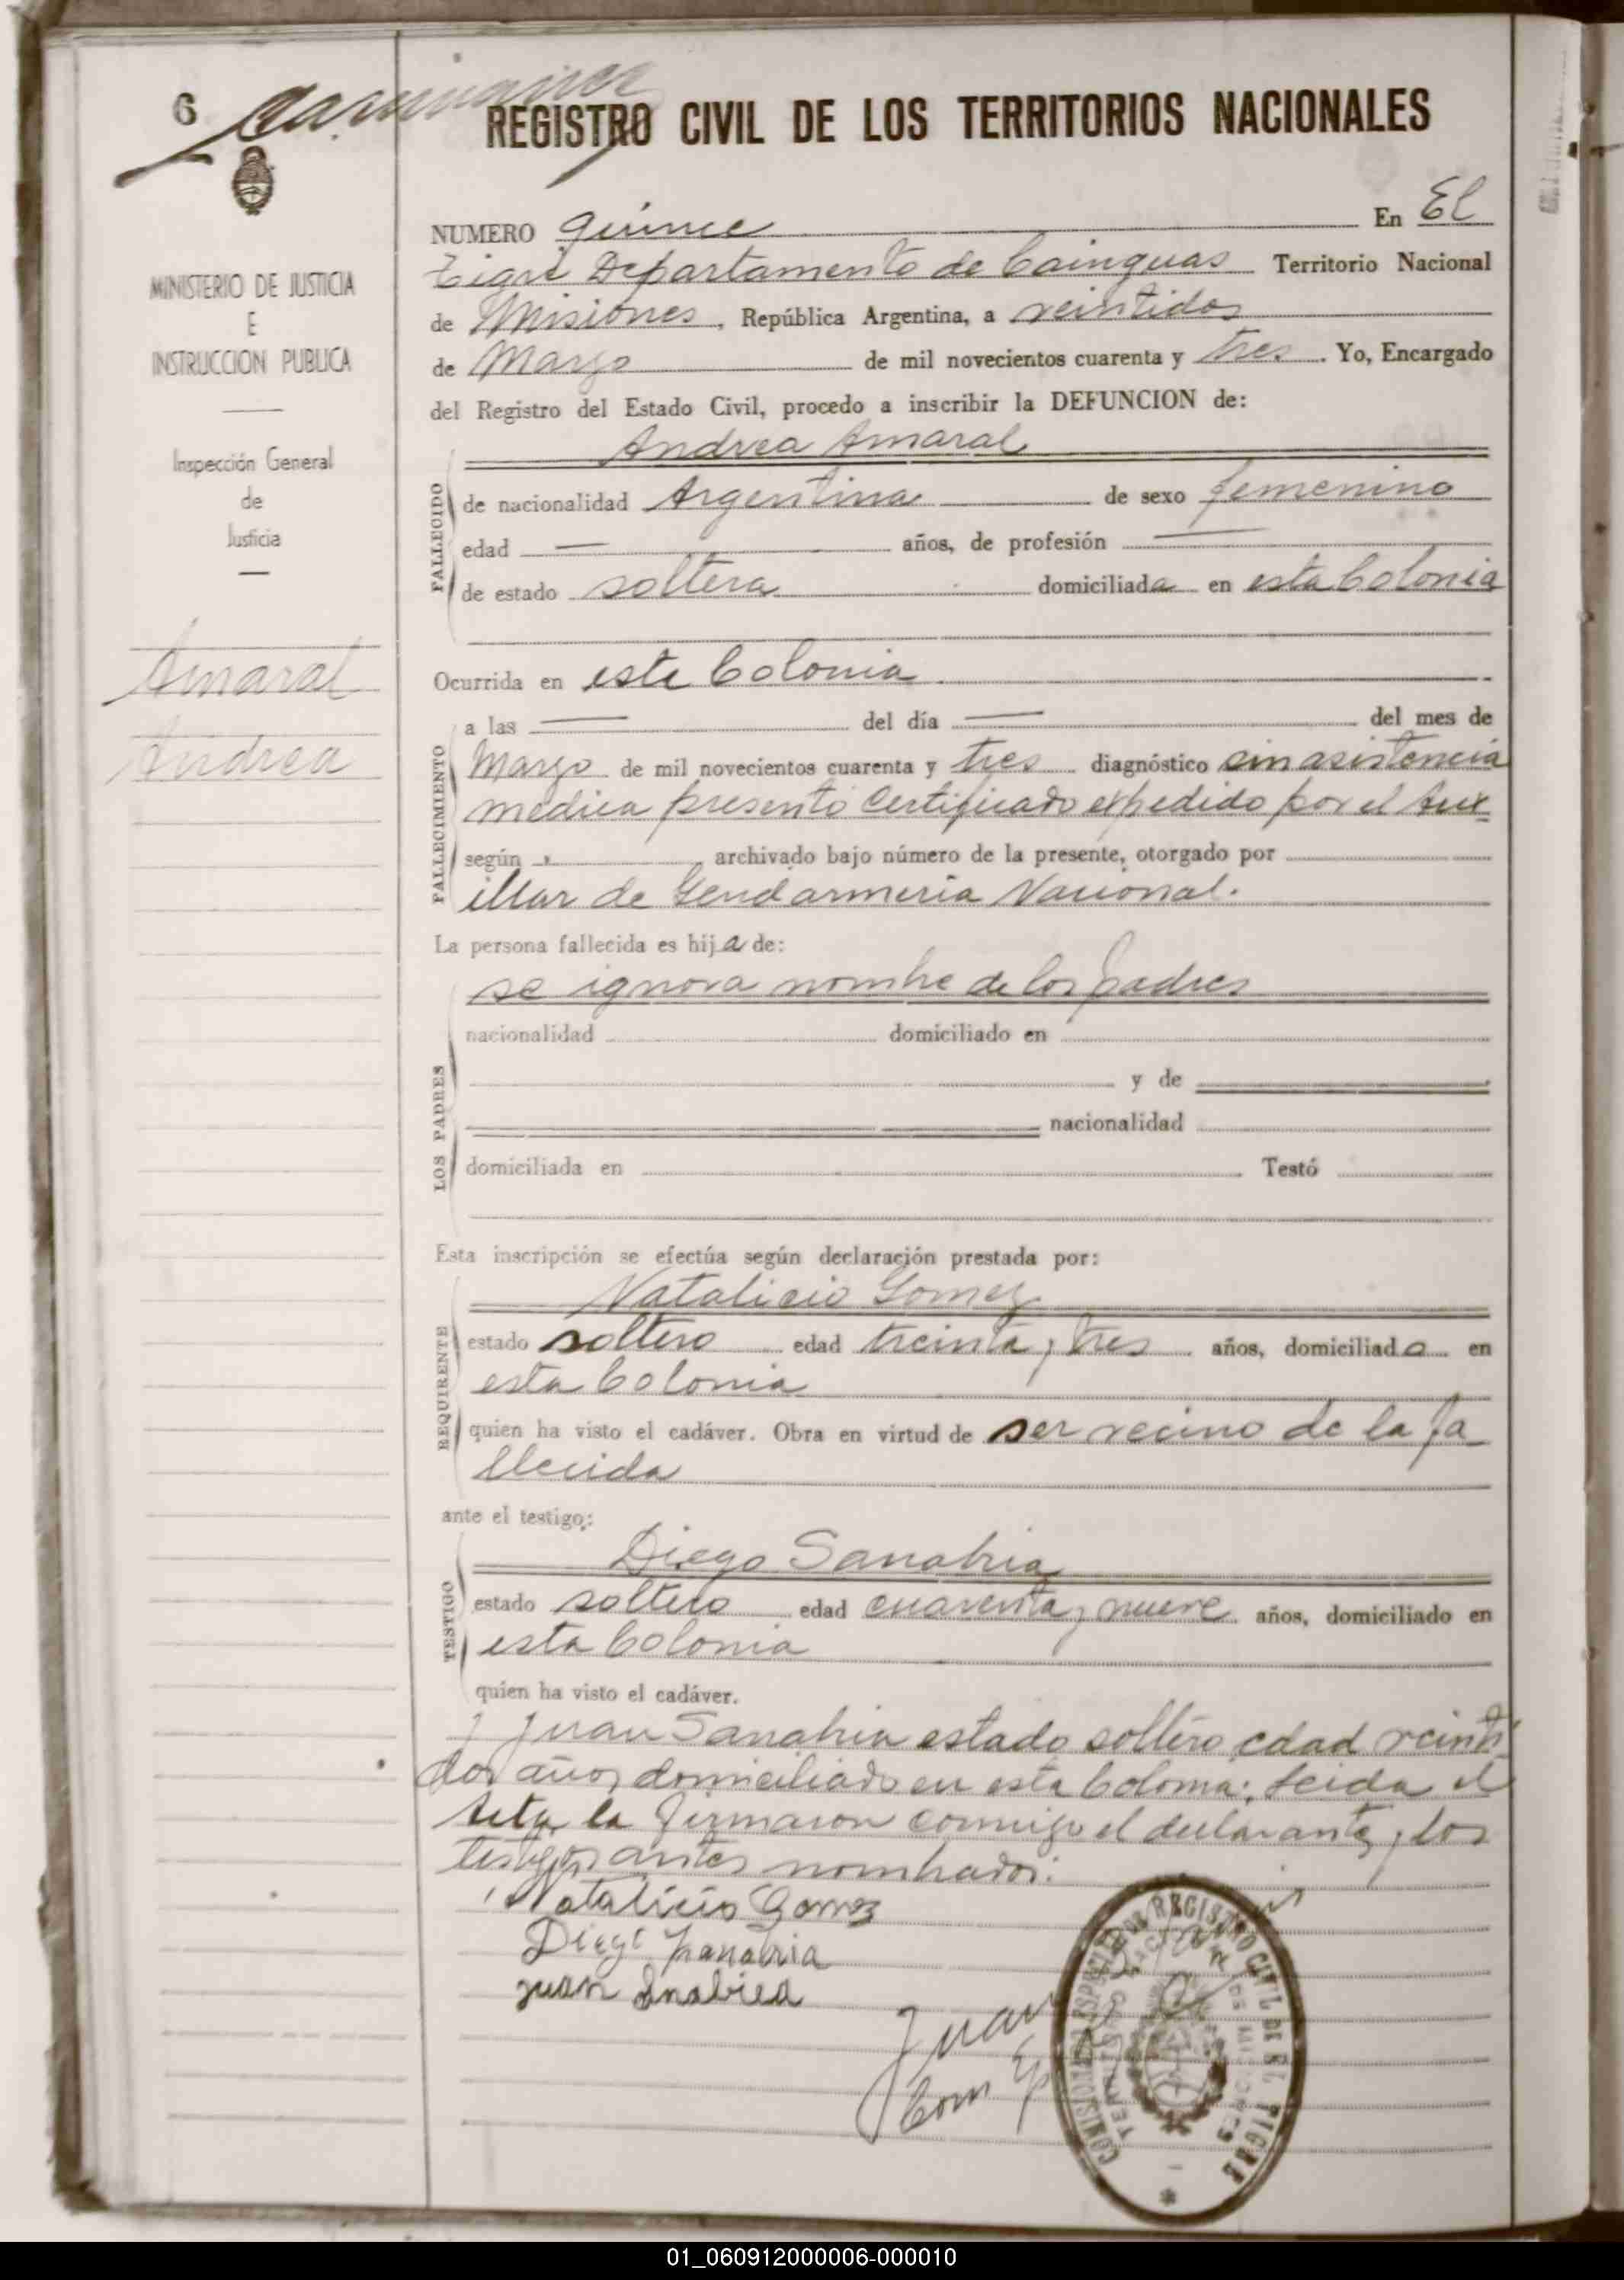 6
REGISTRO CIVIL DE LOS TERRITORIOS NACIONALES
MINISTERIO DE JUSTICIA
E
INSTRUCCION PUBLICA
Inspección General
de
Justicia
Amaral
Andrea
NUMERO quince En El
Tigre Departamento de Cainguas Territorio Nacional
de Misiones, República Argentina, a veintidos
de Marzo de mil novecientos cuarenta y tres. Yo, Encargado
del Registro del Estado Civil, procedo a inscribir la DEFUNCION de:
Andrea Amaral
FALLECIDO
de nacionalidad Argentina de sexo femenino
edad — años, de profesión —
de estado soltera domiciliada en esta Colonia
Ocurrida en esta Colonia
FALLECIMIENTO
a las — del día — del mes de
Marzo de mil novecientos cuarenta y tres diagnóstico sin asistencia
medica presentó certificado expedido por el Aux
según , archivado bajo número de la presente, otorgado por
illar de Gendarmeria Nacional.
La persona fallecida es hija de:
se ignora nombre de los padres
LOS PADRES
nacionalidad domiciliado en
y de
nacionalidad
domiciliada en Testó
Esta inscripción se efectúa según declaración prestada por:
Natalicio Gomez
REQUIRENTE
estado soltero edad treinta y tres años, domiciliado en
esta Colonia
quien ha visto el cadáver. Obra en virtud de ser vecino de la fa
llecida
ante el testigo:
Diego Sanabria
TESTIGO
estado soltero edad cuarenta y nueve años, domiciliado en
esta Colonia
quien ha visto el cadáver.
y Juan Sanabria estado soltero edad veinti
dos años domiciliado en esta Colonia; Leida el
Acta la firmaron conmigo el declarante y los
testigos antes nombrados.
Natalicio Gomez
Diego Sanabria
Juan Snabria
Juan
Com
COMISIONADO ESPECIAL DEL REGISTRO CIVIL DE EL TIGRE
01_060912000006-000010